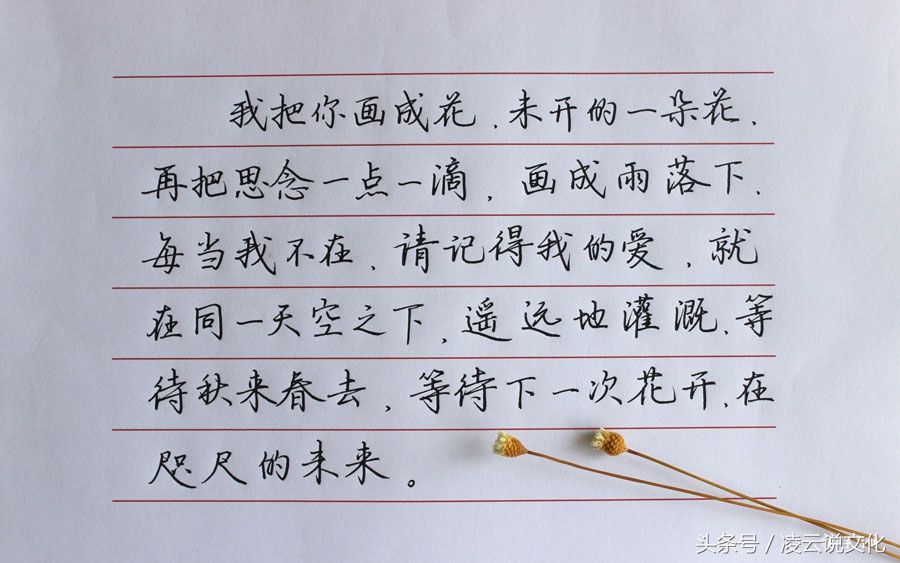 我把你画成花，未开的一朵花，
再把思念一点一滴，画成雨落下，
每当我不在，请记得我的爱，就
在同一天空之下，遥远地灌溉，等
待秋来春去，等待下一次花开，在
咫尺的未来。
头条号 / 凌云说文化